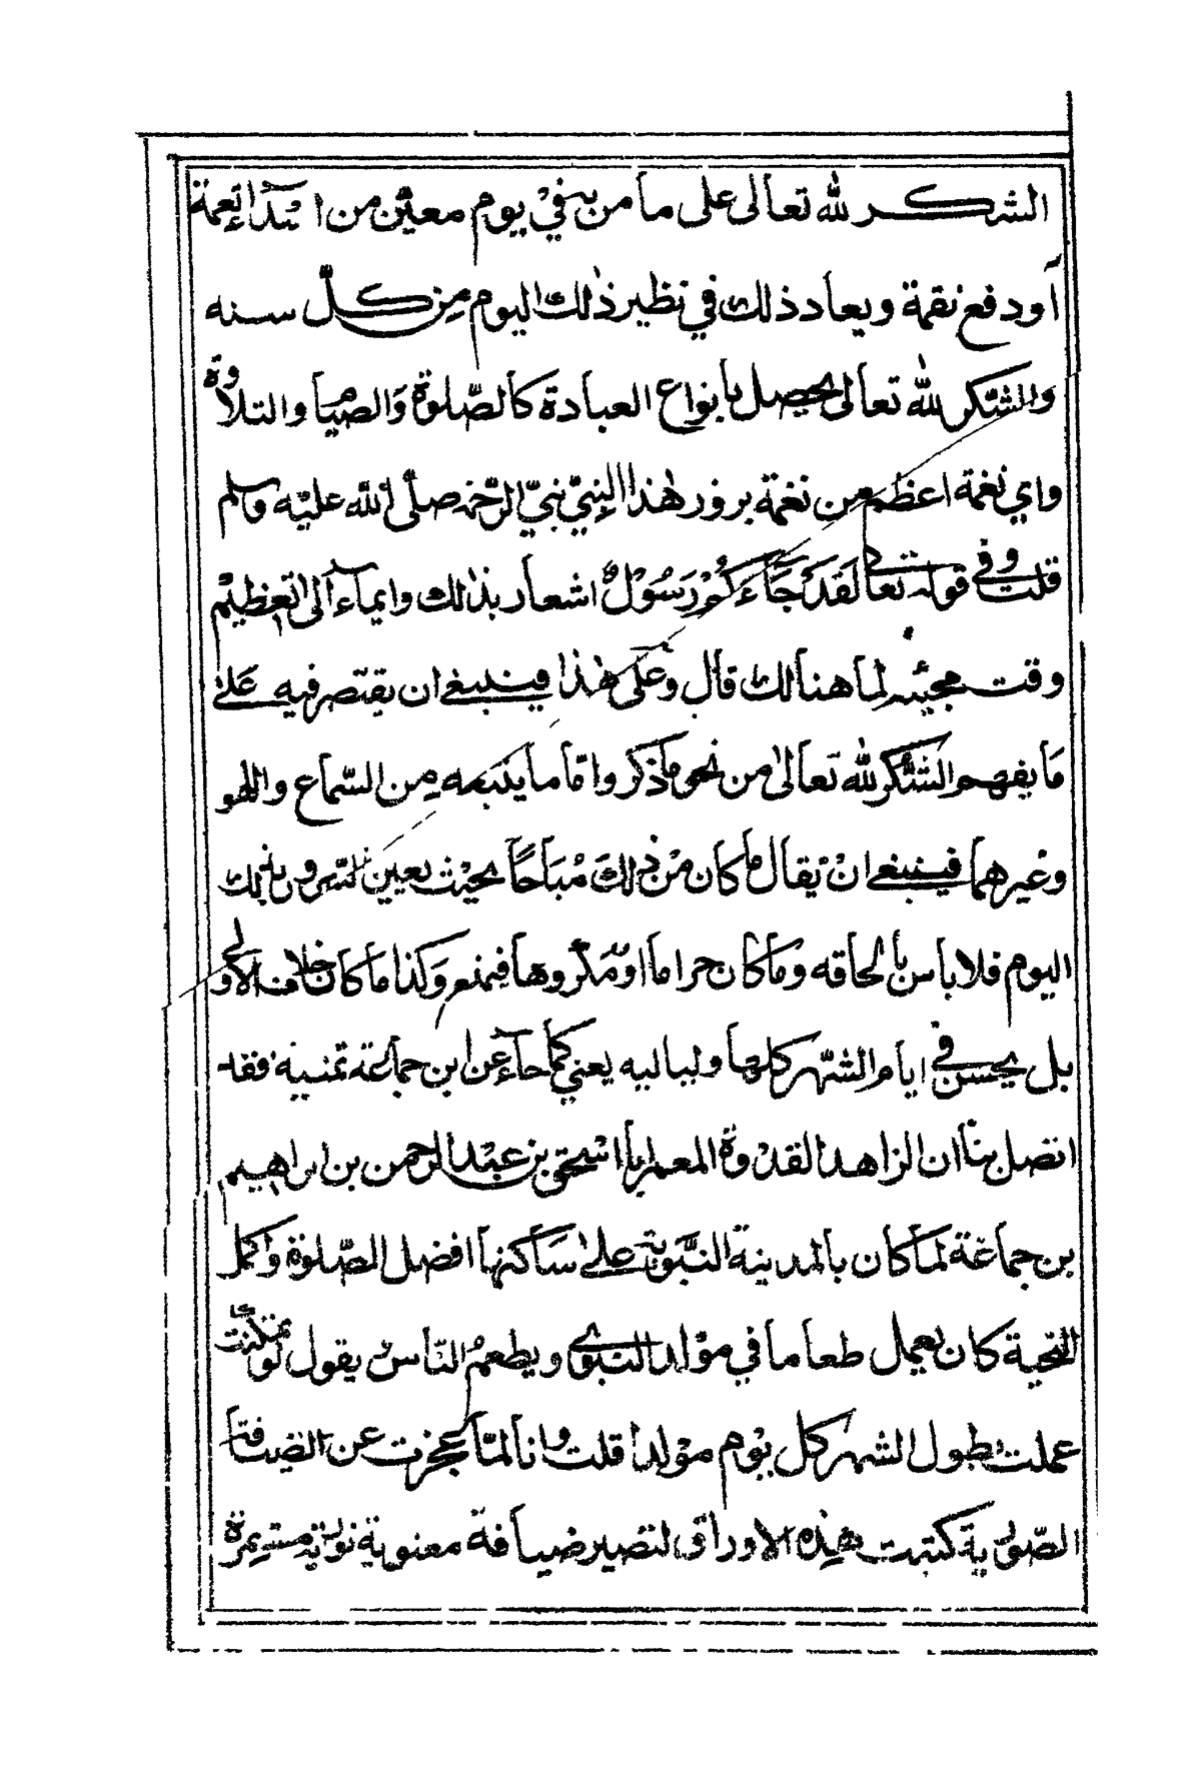 الشكر لله تعالى على ما من به في يوم معين من اسداء نعمة
أو دفع نقمة ويعاد ذلك في نظير ذلك اليوم من كلّ سنه
والشكر لله تعالى يحصل بأنواع العبادة كالصّلوة والصيام والتلاوة
واي نعمة اعظم من نعمة بروز هٰذا النبيّ نبيّ الرّحمة صلى الله عليه وسلم
قلت وفي قوله تعالى لَقَدْ جَاءَكُمْ رَسُوْلٌ اشعار بذٰلك وايماء الى تعظيم
وقت مجيئه لما هنالك قال وعلى هٰذا فينبغي ان يقتصر فيه على
ما يفهم الشكر لله تعالىٰ من نحو ما ذكر واما ما يتبعه من السّماع واللهو
وغيرهما فينبغي انْ يقال ما كان منْ ذٰلك مُبَاحًا بحيْث يعين للسّرور بذلك
اليوم فلا بأس بالحاقه وما كان حراما او مكروها فيمنع وكذا ما كان خلاف الأولى
بل يحسن في ايام الشّهر كلها ولياليه يعني كما جاء عن ابن جماعة تمنيه فقد
اتصل بنا ان الزاهد القدْوة المعمر ابا اسْحٰق بن عبْد الرحمن بن ابراهيم
بن جماعة لما كان بالمدينة النّبوية علىٰ ساكنها افضل الصّلوة واكمل
التحية كان يعمل طعاما في موْلد النبوي ويطعم النّاس ويقول لو تمكنت
عملت بطول الشهر كل يوْم موْلدا قلت وانا لمّا عجزت عن الضيافة
الصّورية كتبت هٰذه الاوراق لتصير ضيافة معنوية نورية مستمرة